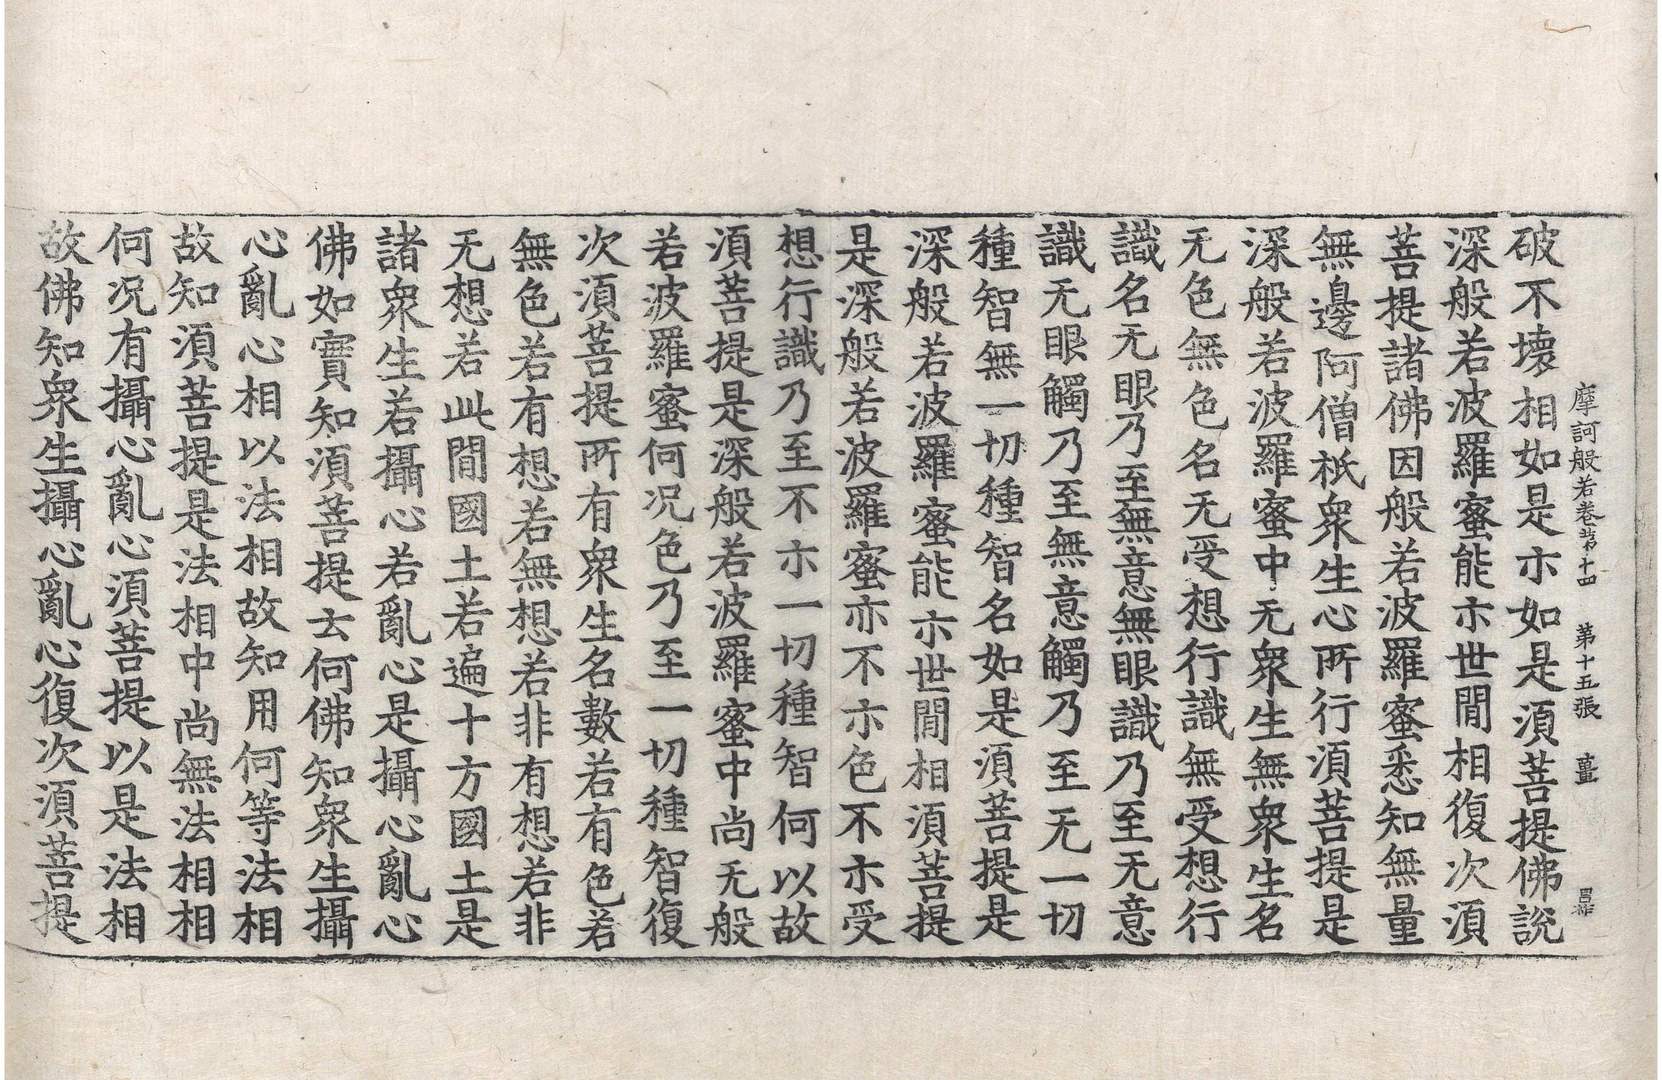 摩訶般若卷第十四 第十五張 薑
破不壞相如是示如是須菩提佛說
深般若波羅蜜能示世間相復次須
菩提諸佛因般若波羅蜜悉知無量
無邊阿僧祇衆生心所行須菩提是
深般若波羅蜜中无衆生無衆生名
无色無色名无受想行識無受想行
識名无眼乃至無意無眼識乃至无意
識无眼觸乃至無意觸乃至无一切
種智無一切種智名如是須菩提是
深般若波羅蜜能示世間相須菩提
是深般若波羅蜜亦不示色不示受
想行識乃至不示一切種智何以故
須菩提是深般若波羅蜜中尚无般
若波羅蜜何况色乃至一切種智復
次須菩提所有衆生名數若有色若
無色若有想若無想若非有想若非
无想若此間國土若遍十方國土是
諸衆生若攝心若亂心是攝心亂心
佛如實知須菩提云何佛知衆生攝
心亂心相以法相故知用何等法相
故知須菩提是法相中尚無法相相
何况有攝心亂心須菩提以是法相
故佛知衆生攝心亂心復次須菩提